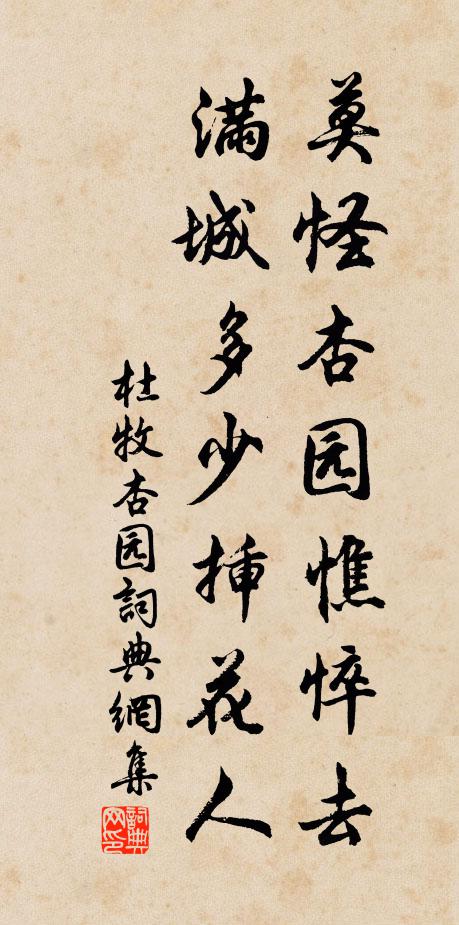 莫怪杏园憔悴去
满城多少插花人
杜牧杏园詞典網集
詞典网印